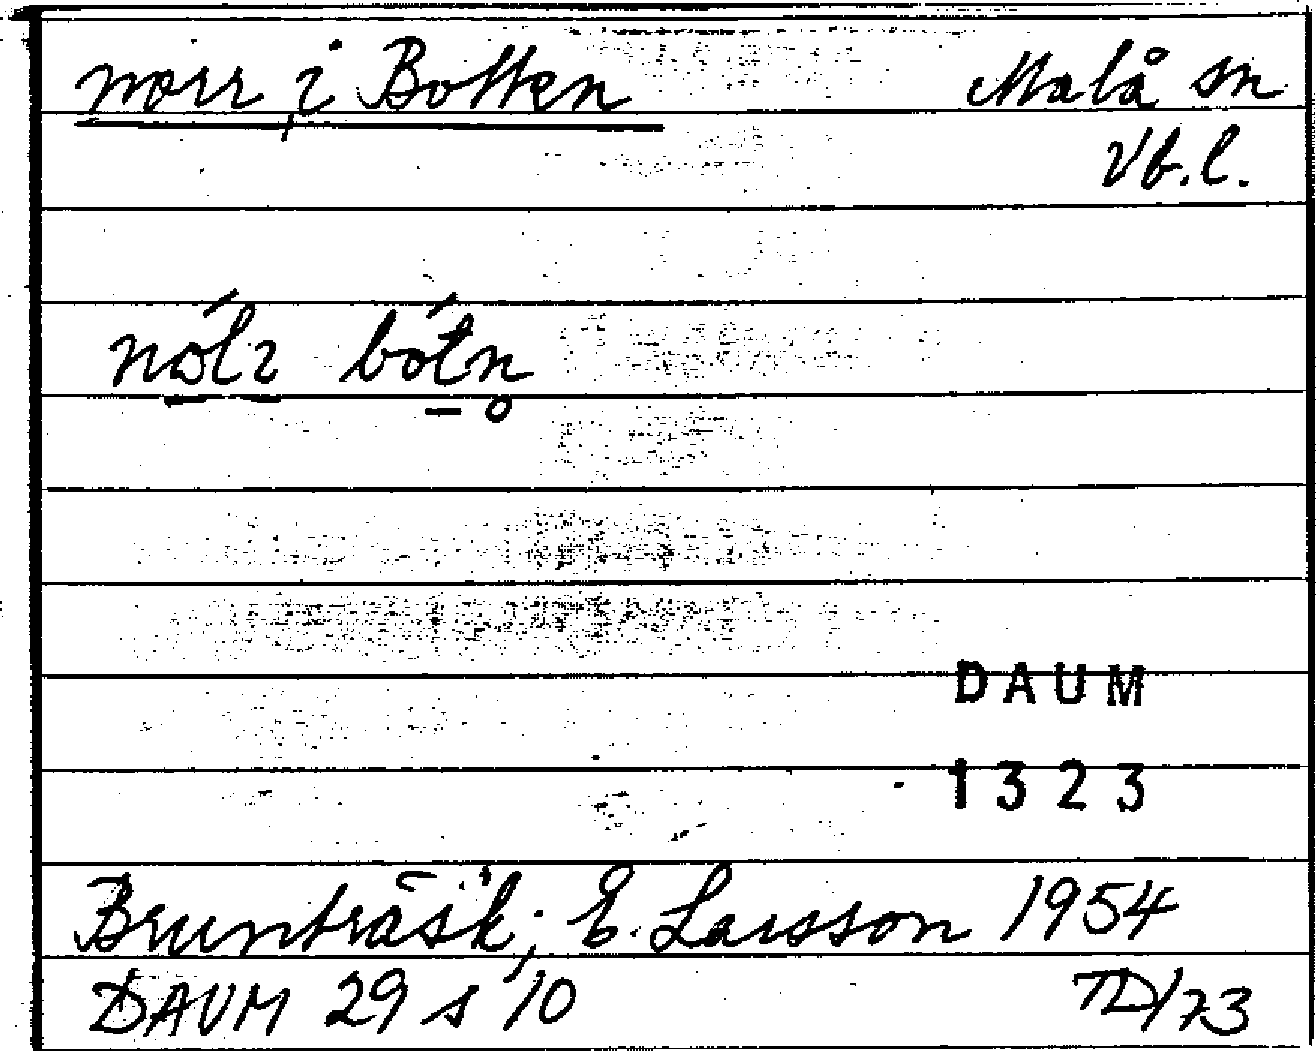 norr i Botten Malå sn
Vb.l.
nólr bótn̥
DAUM
1323
Brunträsk; E. Larsson 1954
DAUM 29 s 10
TD/73